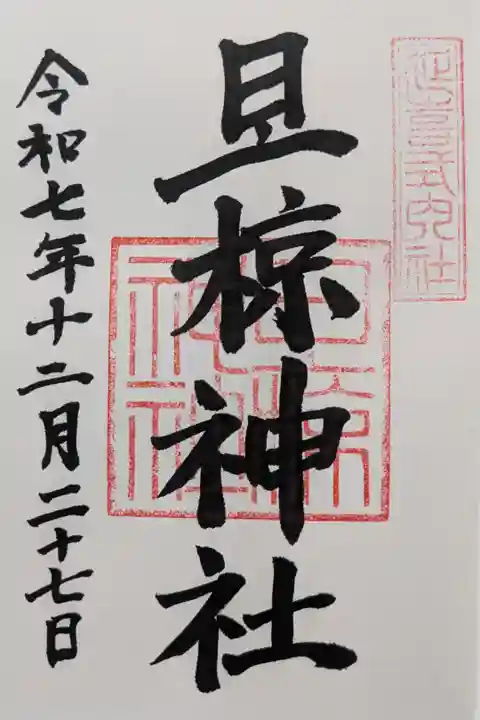 延喜式内社
旦椋神社
令和七年十二月二十七日